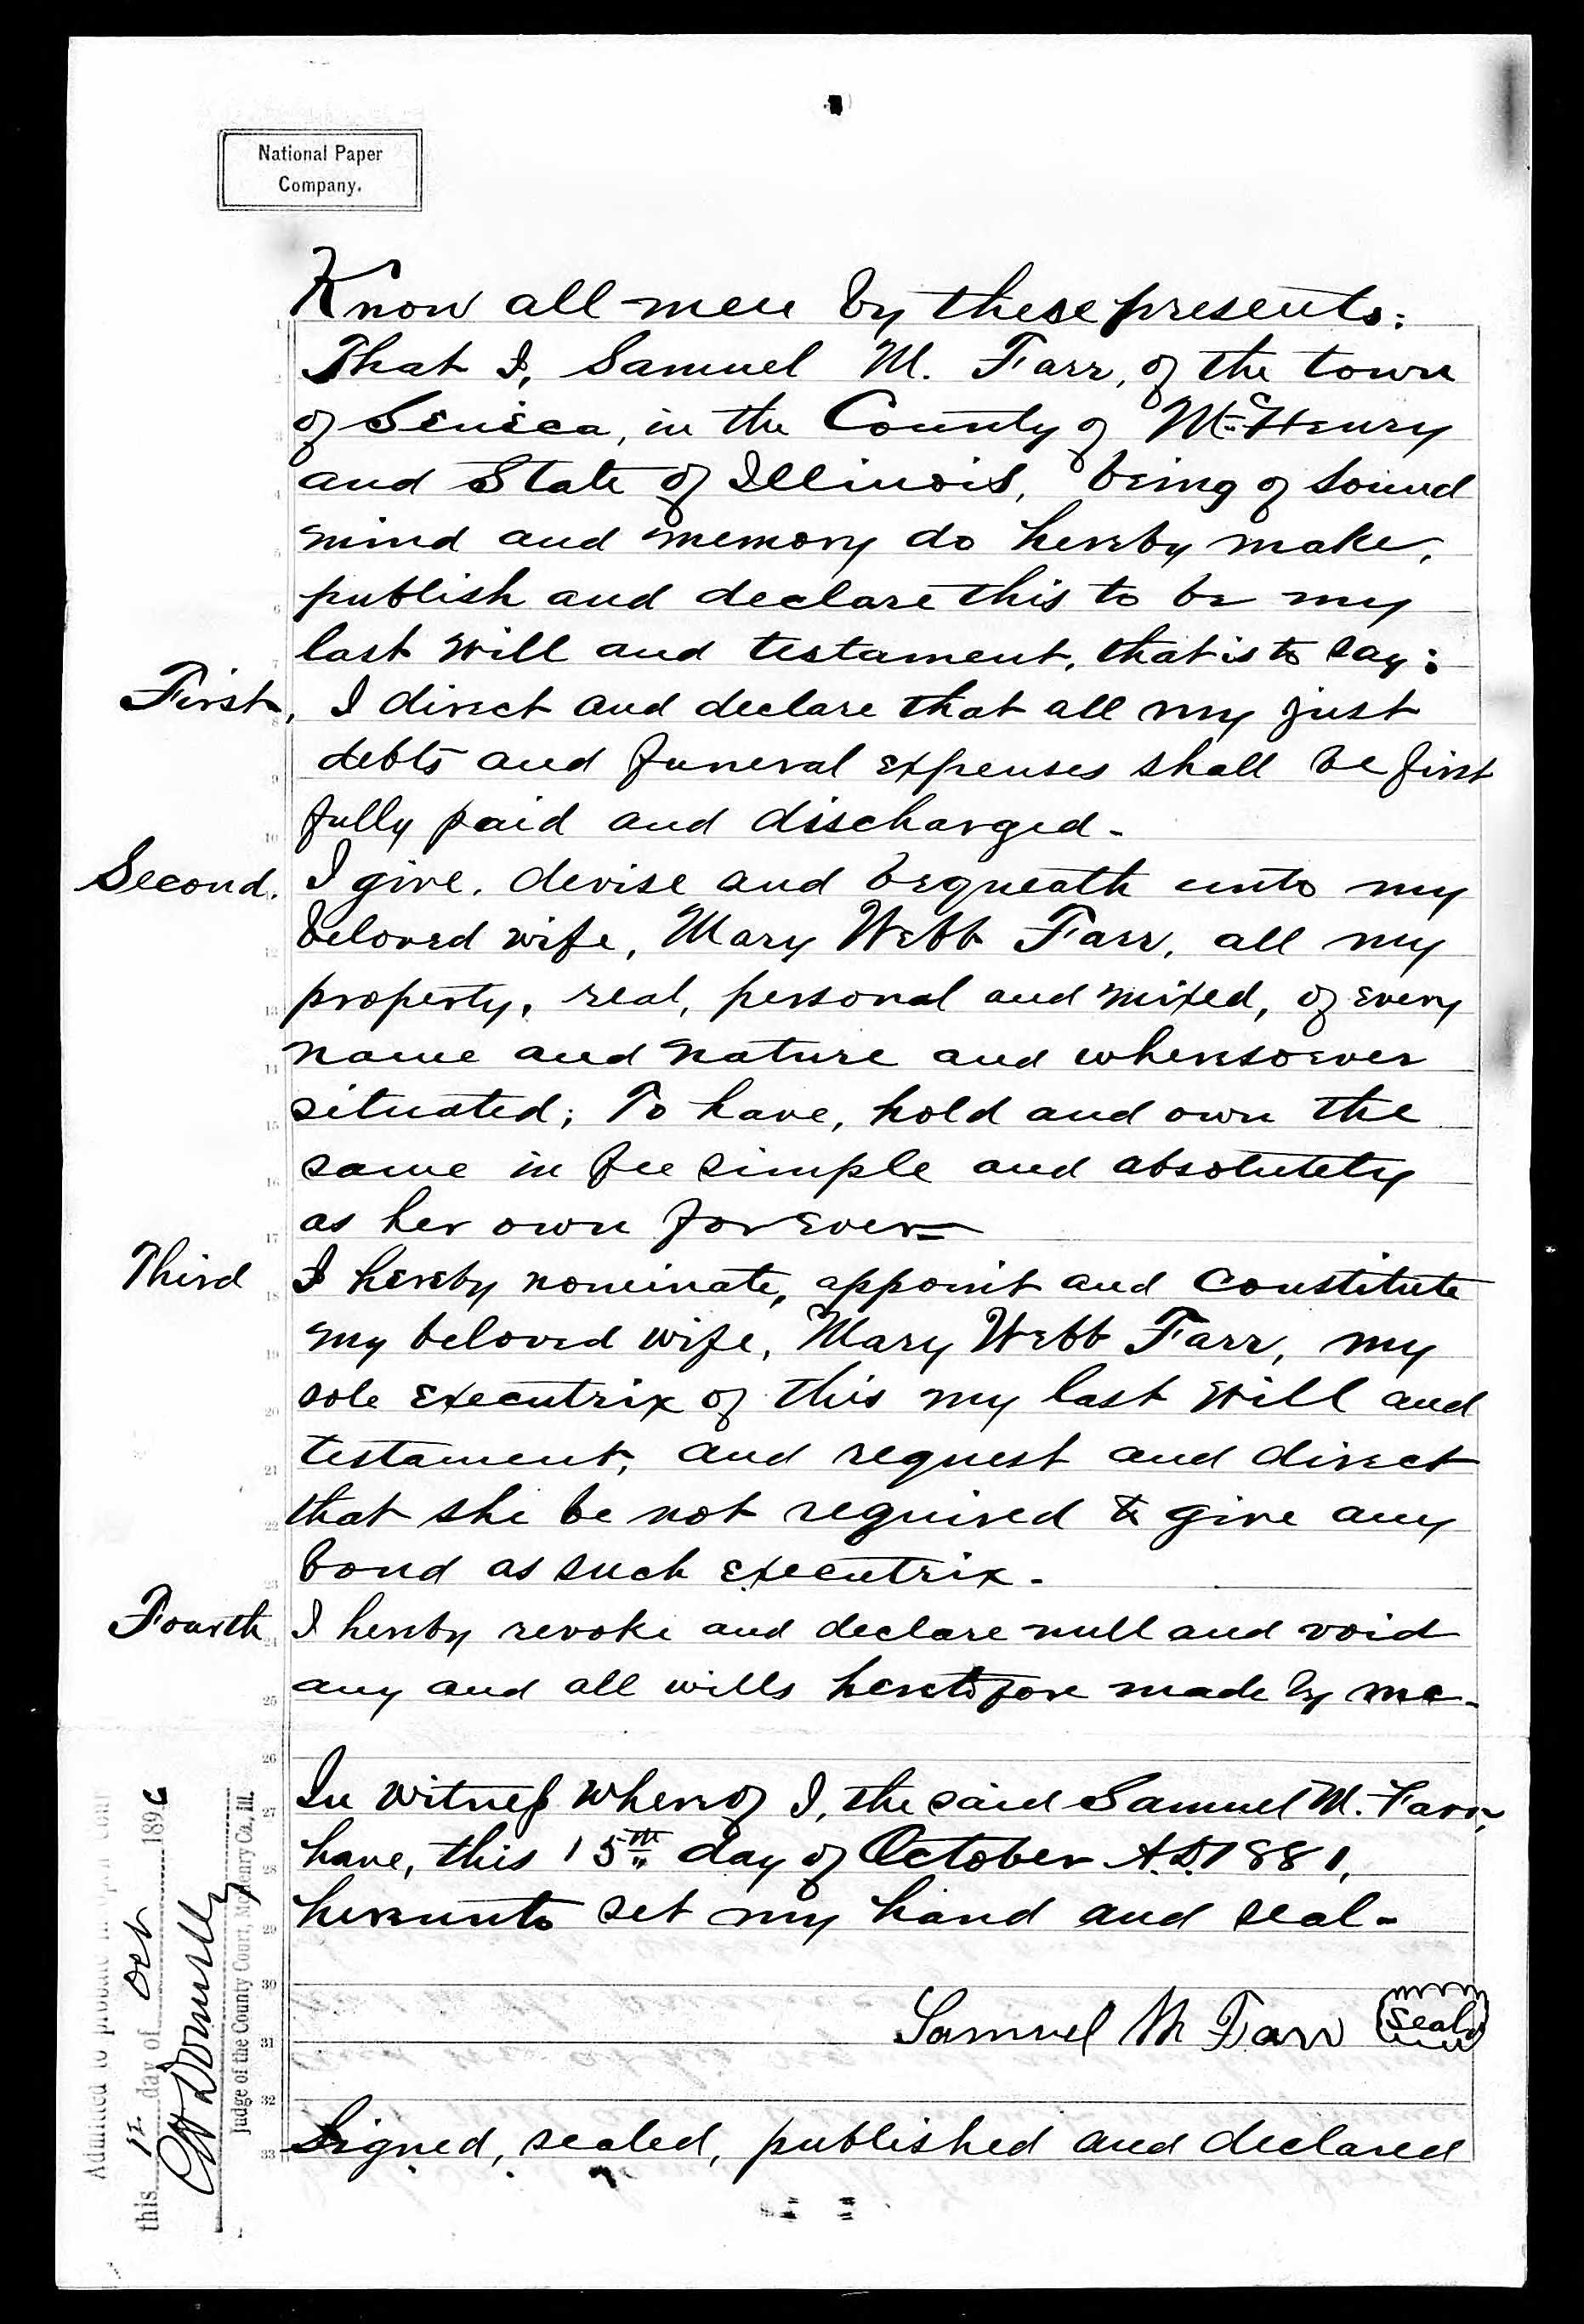 National Paper
Company.
Know all men by these presents:
That I, Samuel M. Farr, of the town
of Seneca, in the County of McHenry
and State of Illinois, being of sound
mind and memory do hereby make,
publish and declare this to be my
last will and testament, that is to say:
First, I direct and declare that all my just
debts and funeral expenses shall be first
fully paid and discharged.
Second. I give, devise and bequeath unto my
beloved wife, Mary Webb Farr, all my
property, real, personal and mixed, of every
name and nature and wheresoever
situated; To have, hold and own the
same in fee simple and absolutely
as her own forever—
Third I hereby nominate, appoint and constitute
my beloved wife, Mary Webb Farr, my
sole executrix of this my last will and
testament, and request and direct
that she be not required to give any
bond as such executrix.
Fourth I hereby revoke and declare null and void
any and all wills heretofore made by me.
In witness whereof I, the said Samuel M. Farr,
have, this 15th day of October A.D. 1881,
hereunto set my hand and seal.
Samuel M Farr Seal
Signed, sealed, published and declared
Admitted to probate in open court
this 12 day of Oct 1896
Judge of the County Court, McHenry Co., Ill.